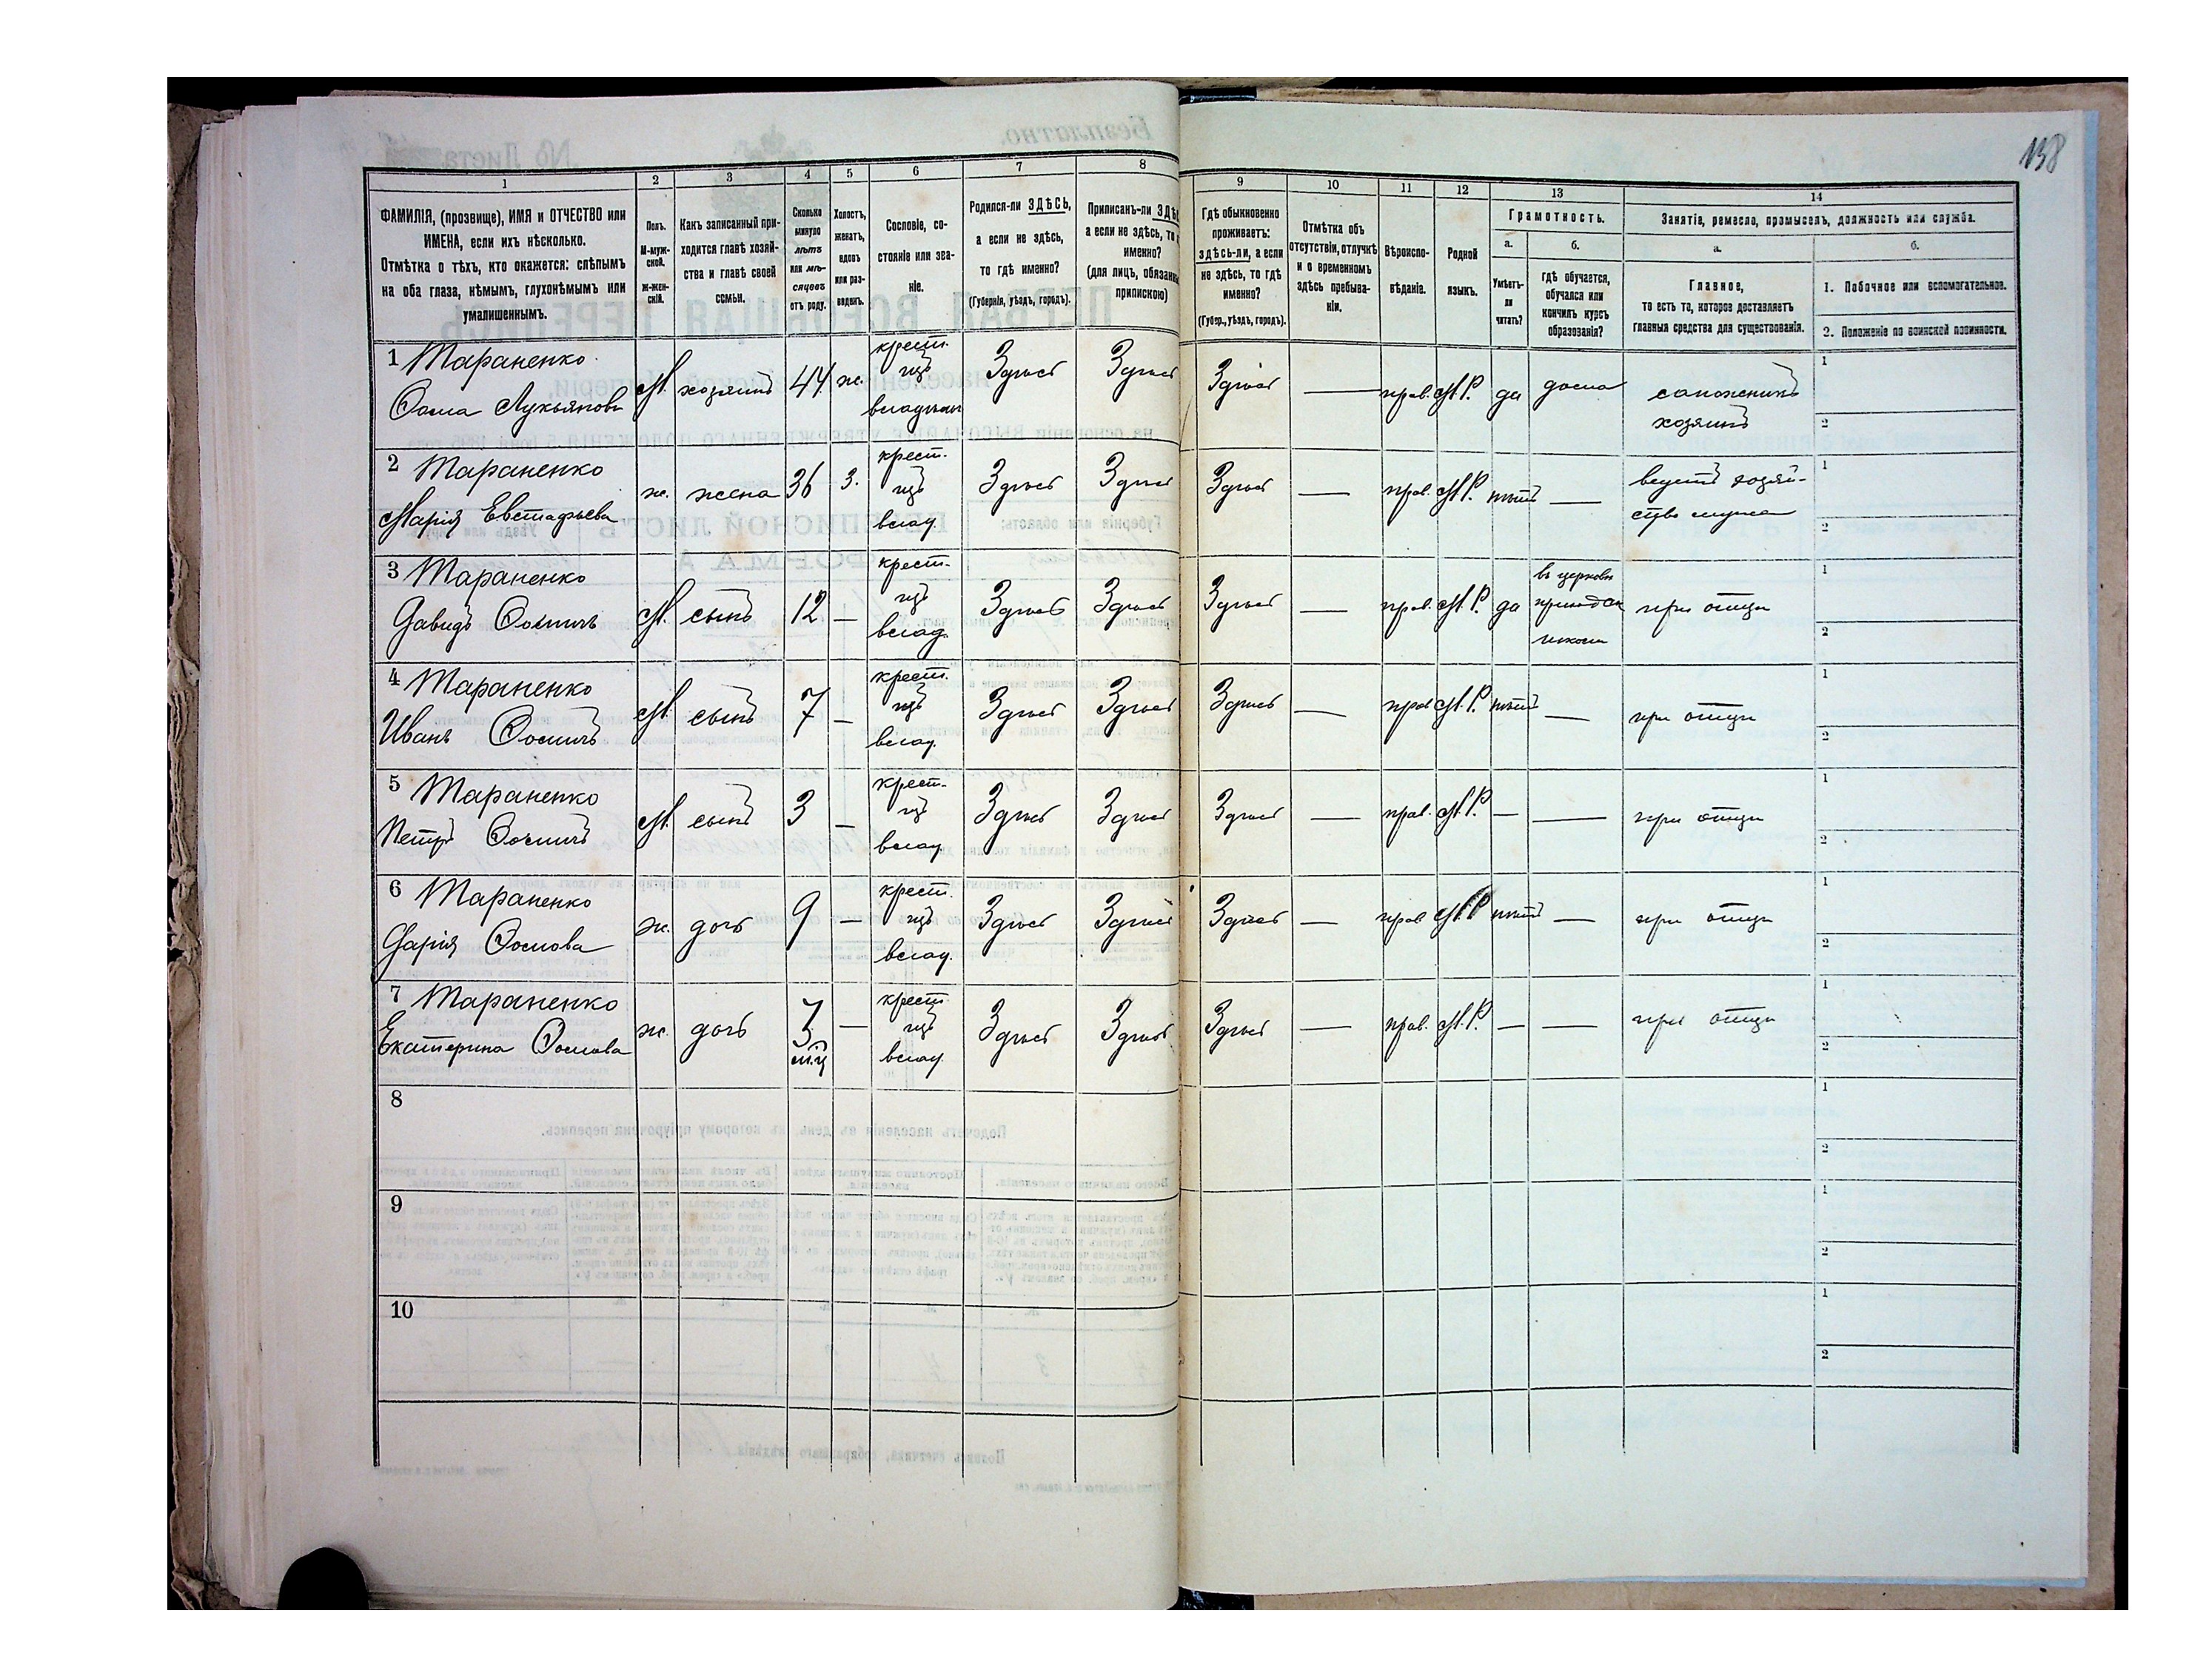 138
1 2 3 4 5 6 7 8 9 10 11 12 13 14
ФАМИЛІЯ, (прозвище), ИМЯ и ОТЧЕСТВО или
ИМЕНА, если ихъ нѣсколько.
Отмѣтка о тѣхъ, кто окажется: слѣпымъ
на оба глаза, нѣмымъ, глухонѣмымъ или
умалишеннымъ.
Полъ.
М-муж-
ской.
ж-жен-
скій.
Какъ записанный при-
ходится главѣ хозяй-
ства и главѣ своей
семьи.
Сколько
минуло
лѣтъ
или мѣ-
сяцевъ
отъ роду.
Холостъ,
женатъ,
вдовъ
или раз-
веденъ.
Сословіе, со-
стояніе или зва-
ніе.
Родился-ли ЗДѢСЬ,
а если не здѣсь,
то гдѣ именно?
(Губернія, уѣздъ, городъ).
Приписанъ-ли
а если не здѣсь, то
именно?
(для лицъ,
припискою)
Гдѣ обыкновенно
проживаетъ:
здѣсь-ли, а если
не здѣсь, то гдѣ
именно?
(Губер., уѣздъ, городъ).
Отмѣтка объ
отсутствіи, отлучкѣ
и о временномъ
здѣсь пребыва-
ніи.
Вѣроиспо-
вѣданіе.
Родной
языкъ.
Грамотность.
а.
Умѣетъ-
ли
читать?
б.
гдѣ обучается,
обучался или
кончилъ курсъ
образованія?
Занятіе, ремесло, промыселъ, должность или служба.
а.
Главное,
то есть то, которое доставляетъ
главныя средства для существованія.
б.
1. Побочное или вспомогательное.
2. Положеніе по воинской повинности.
1 Тараненко
Фома Лукьяновъ М. хозяинъ 44 ж. крест. изъ владѣльч. Здѣсь Здѣсь Здѣсь — прав. М.Р. да дома сапожникъ
хозяинъ
1
2
2 Тараненко
Марія Евстафьева ж. жена 36 з. крест. изъ влад. Здѣсь Здѣсь Здѣсь — прав. М.Р. нѣтъ — ведетъ хозяй-
ство мужа
1
2
3 Тараненко
Давидъ Ѳоминъ М. сынъ 12 — крест. изъ влад. Здѣсь Здѣсь Здѣсь — прав. М.Р. да въ церковн приходск школѣ при отцѣ
1
2
4 Тараненко
Иванъ Ѳоминъ М. сынъ 7 — крест. изъ влад. Здѣсь Здѣсь Здѣсь — прав М.Р. нѣтъ — при отцѣ
1
2
5 Тараненко
Петръ Ѳоминъ М. сынъ 3 — крест. изъ влад. Здѣсь Здѣсь Здѣсь — прав. М.Р. — — при отцѣ
1
2
6 Тараненко
Дарія Ѳомова ж. дочь 9 — крест. изъ влад. Здѣсь Здѣсь Здѣсь — прав М.Р. нѣтъ — при отцѣ
1
2
7 Тараненко
Екатерина Ѳомова ж. дочь — крест. изъ влад. Здѣсь Здѣсь Здѣсь — прав. М.Р. — — при отцѣ
1
2
8
1
2
9
1
2
10
1
2